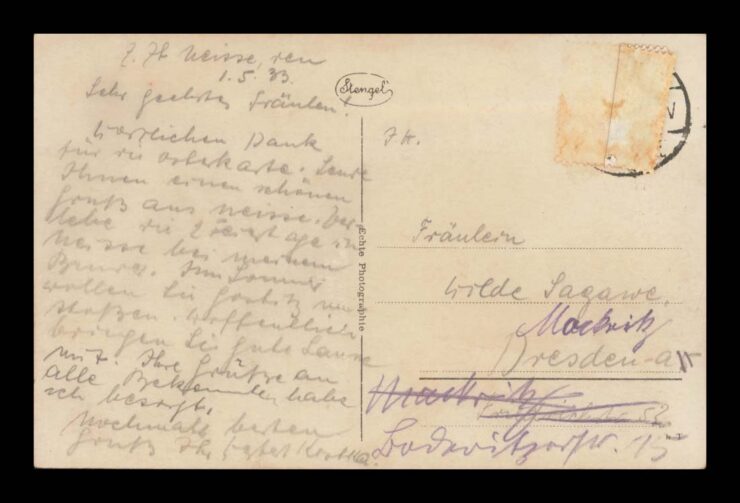 z. Zt. Neisse, den
1.5.33.
Sehr geehrtes Fräulein!
Herzlichen Dank
für die Osterkarte. Sende
Ihnen einen schönen
Gruß aus Neisse.
die 2 Feiertage in
Neisse bei meinem
wollen Sie
Hoffentlich
bringen Sie gute Laune
mit. Ihre Grüße an
alle Bekannten habe
ich besorgt.
Nochmals besten
Gruß Ihr
Stengel
Echte Photographie
Fräulein
Hilde Sagawe,
Mockritz
Dresden-A
Mockritz
52
Boderitzerstr. 15